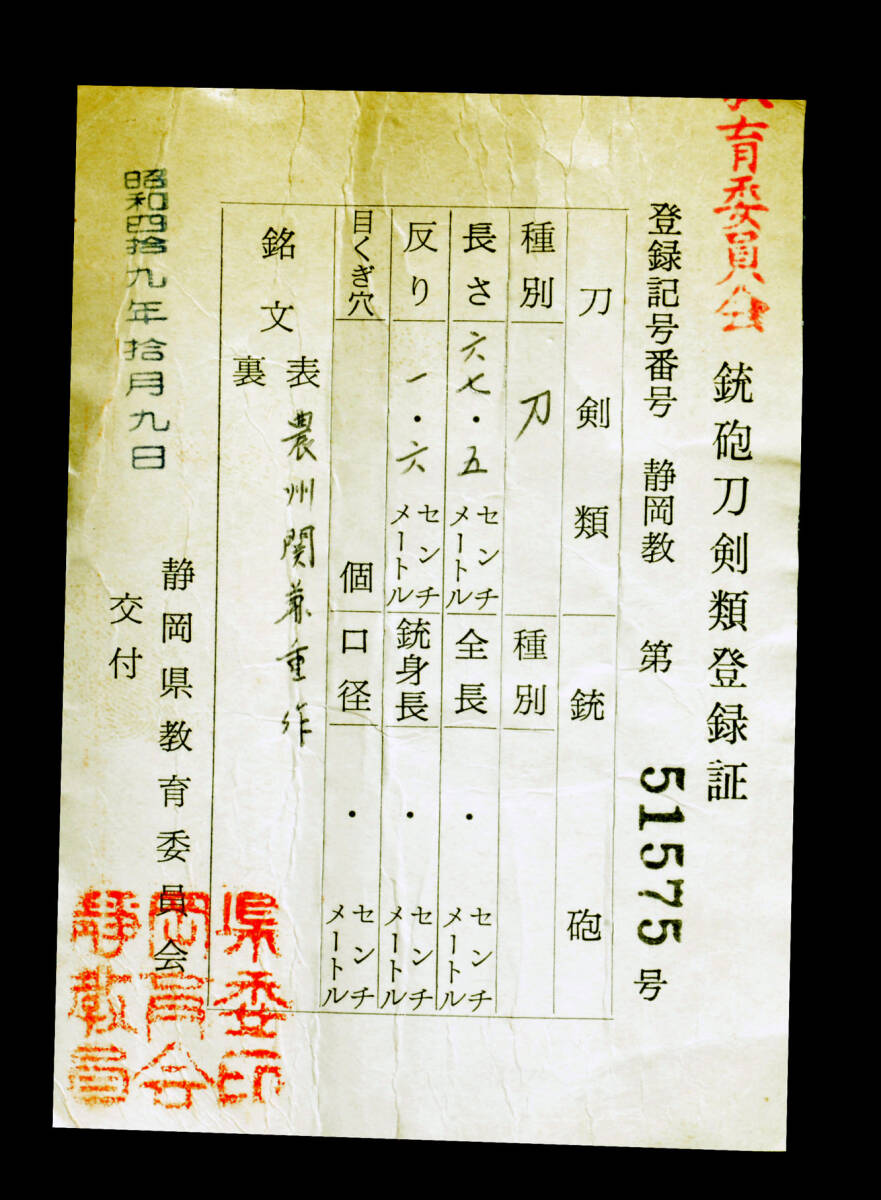 育委員会
銃砲刀剣類登録証
登録記号番号 静岡教 第 51575 号
刀剣類 銃砲
種別 刀 種別
長さ 六七・五 センチメートル 全長 ・ センチメートル
反り 一・六 センチメートル 銃身長 ・ センチメートル
目くぎ穴 個 口径 ・ センチメートル
銘文 表 農州関兼重作
裏
昭和四拾九年拾月九日
静岡県教育委員会
交付